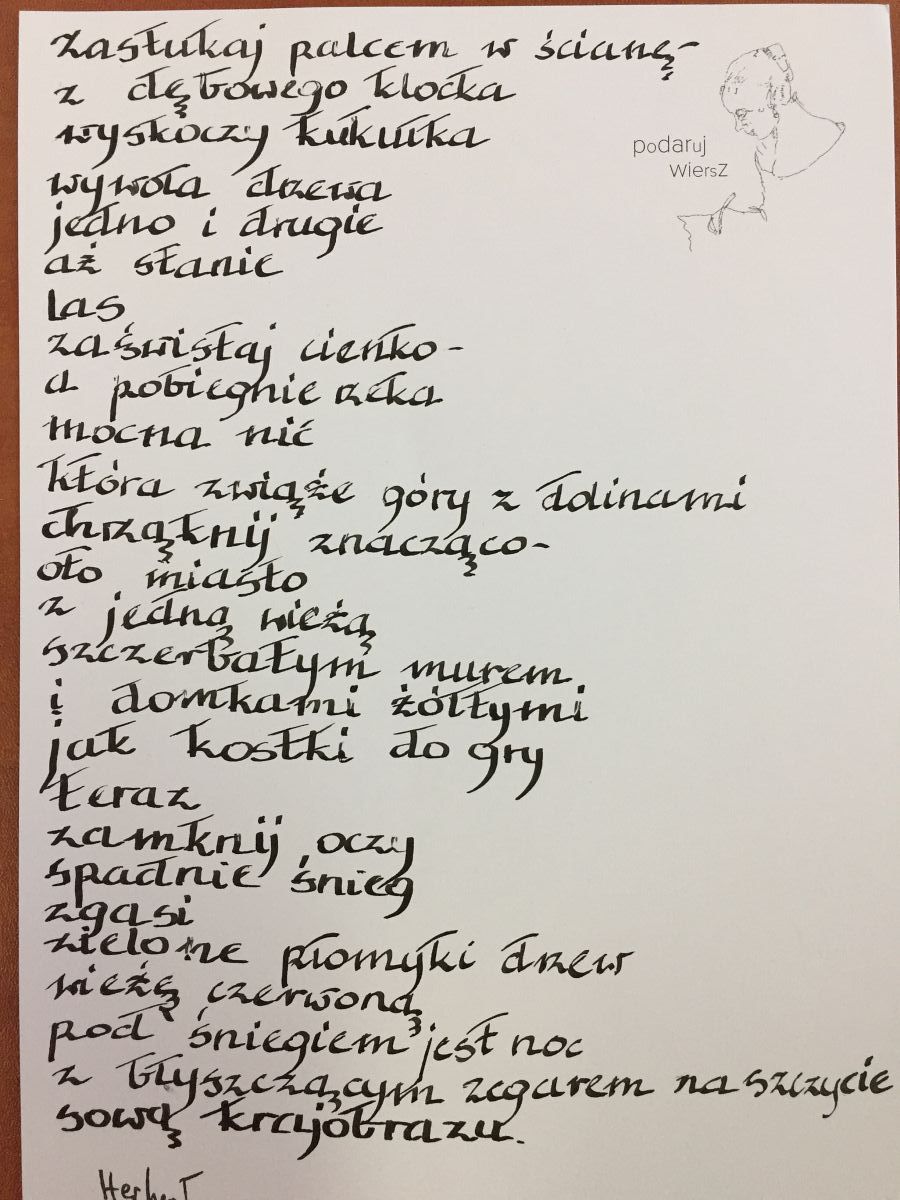 Zastukaj palcem w ścianę-
z dębowego klocka
wyskoczy kukułka
wywoła drzewa
jedno i drugie
aż stanie
las
zaświstaj cienko-
a pobiegnie rzeka
mocna nić
która zwiąże góry z dolinami
chrząknij znacząco-
oto miasto
z jedną wieżą
szczerbatym murem
i domkami żółtymi
jak kostki do gry
teraz
zamknij oczy
spadnie śnieg
zgasi
zielone płomyki drzew
wieżę czerwoną
pod śniegiem jest noc
z błyszczącym zegarem na szczycie
sową krajobrazu.
Herbert
podaruj
wiersz